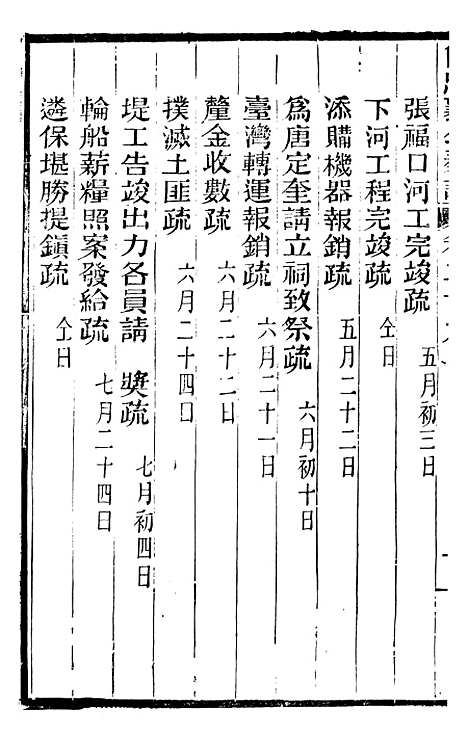 張福口河工完竣疏 五月初三日
下河工程完竣疏 仝日
添購機器報銷疏 五月二十二日
爲唐定奎請立祠致祭疏 六月初十日
臺灣轉運報銷疏 六月二十一日
釐金收數疏 六月二十二日
撲滅土匪疏 六月二十四日
堤工告竣出力各員請 奬疏 七月初四日
輪船薪糧照案發給疏 七月二十四日
遴保堪勝提鎭疏 仝日